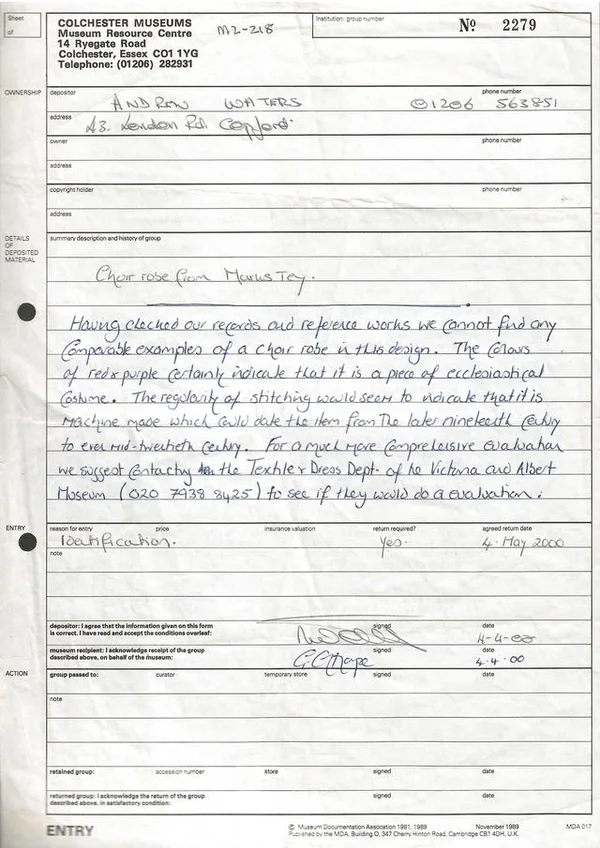 Sheet
of
COLCHESTER MUSEUMS
Museum Resource Centre
14 Ryegate Road
Colchester, Essex CO1 1YG
Telephone: (01206) 282931
M2-218
Institution: group number
№ 2279
OWNERSHIP
depositor
phone number
ANDREW WATERS
01206 563851
address
43. London Rd. Copford.
owner
phone number
address
copyright holder
phone number
address
DETAILS
OF
DEPOSITED
MATERIAL
summary description and history of group
Choir robe from Marks Tey.
Having checked our records and reference works we cannot find any
comparable examples of a choir robe in this design. The colours
of red & purple certainly indicate that it is a piece of ecclesiastical
costume. The regularity of stitching would seem to indicate that it is
machine made which could date the item from the later nineteenth century
to even mid-twentieth century. For a much more comprehensive evaluation
we suggest contacting the Textile & Dress Dept. of the Victoria and Albert
Museum (020 7938 8425) to see if they would do a evaluation.
ENTRY
reason for entry
price
insurance valuation
return required?
agreed return date
Identification.
Yes.
4. May 2000
note
depositor: I agree that the information given on this form
is correct. I have read and accept the conditions overleaf:
signed
date
4-4-00
museum recipient: I acknowledge receipt of the group
described above, on behalf of the museum:
signed
date
4.4.00
ACTION
group passed to:
curator
temporary store
signed
date
note
retained group:
accession number
store
signed
date
returned group: I acknowledge the return of the group
described above, in satisfactory condition:
signed
date
ENTRY
© Museum Documentation Association 1981, 1989
November 1989
MDA 017
Published by the MDA, Building O, 347 Cherry Hinton Road, Cambridge CB1 4DH, U.K.